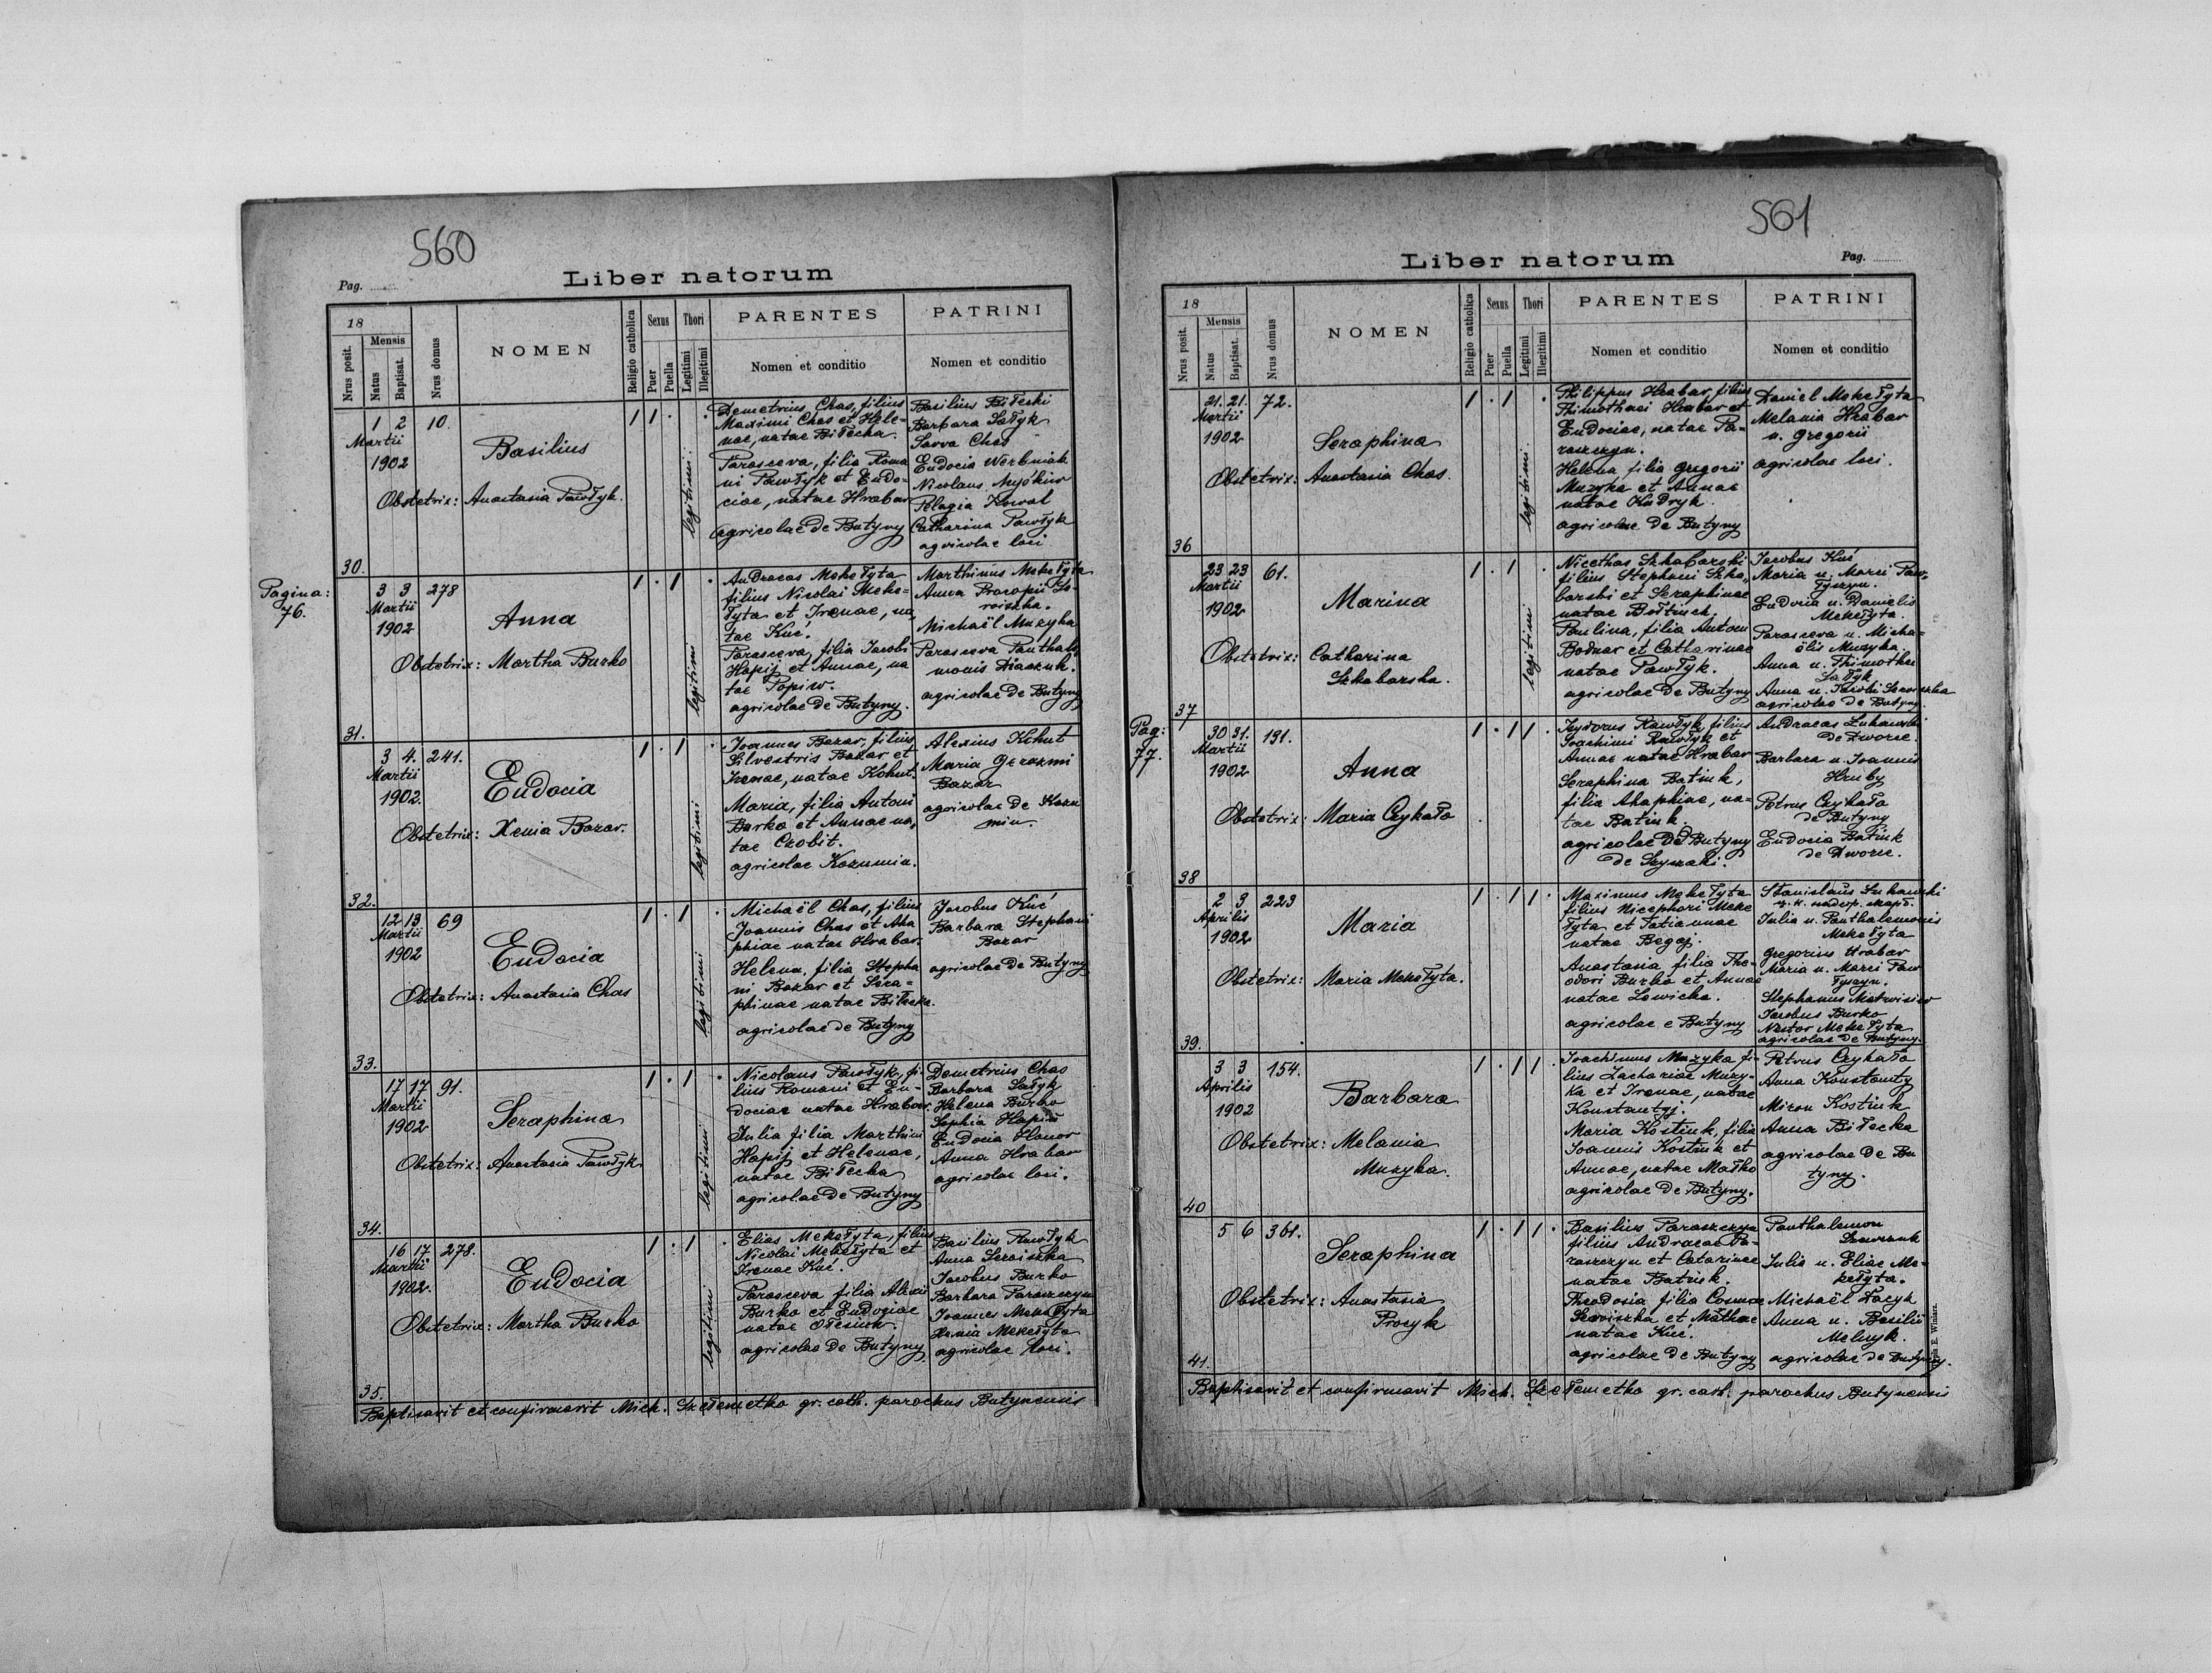 560
Pag.
Liber natorum
18
Nrus posit.
Mensis
Natus
Baptisat.
Nrus domus
NOMEN
Religio catholica
Sexus
Puer
Puella
Thori
Legitimi
Illegitimi
PARENTES
Nomen et conditio
PATRINI
Nomen et conditio
1 2 10.
Martii
1902
Basilius
Obstetrix: Anastasia Pawłyk.
1 1 .
legitimi
Demetrius Chas, filius
Maximi Chas et Hele-
nae, natae Biłecka.
Parasceva, filia Roma
ni Pawłyk et Eudo-
ciae, natae Hrabar
agricolae de Butyny
Basilius Biłecki
Barbara Sałyk
Sawa Chas
Eudocia Werbniak
Nicolaus Myśkiw
Pelagia Kowal
Catharina Pawłyk
agricolae loci
30.
Pagina:
76.
3 3 278
Martii
1902
Anna
Obstetrix: Martha Burko
1 . 1 .
legitimi
Andraeas Mekełyta
filius Nicolai Meke-
łyta et Irenae, na,
tae Kuć.
Parasceva, filia Jacobi
Hapij et Annae, na
tae Popiw.
agricolae de Butyny.
Marthinus Mekełyta
Anna Procopii Se-
roiszka.
Michaël Muzyka
Parasceva Panthale
monis Diaczuk.
agricolae de Butyny
31.
3 4. 241.
Martii
1902.
Eudocia
Obstetrix: Xenia Bazar.
1 . 1 .
legitimi
Joannes Bazar, filius
Silvestris Bazar et
Irenae, natae Kohut.
Maria, filia Antoni
Burko et Annae na,
tae Czobit.
agricolae Kozumin.
Alexius Kohut
Maria Gerazmi
Bazar
agricolae de Kozu
min.
32.
12 13 69
Martii
1902
Eudocia
Obstetrix: Anastasia Chas
1 . 1 .
legitimi
Michaël Chas, filius
Joannis Chas et Aha
phiae natae Hrabar.
Helena, filia Stepha
ni Bazar et Sera-
phinae natae Biłecka.
agricolae de Butyny
Jacobus Kuć
Barbara Stephani
Bazar
agricolae de Butyny
33.
17 17 91.
Martii
1902
Seraphina
Obstetrix: Anastasia Pawłyk
1 . 1 .
legitimi
Nicolaus Pawłyk, fi-
lius Romani et Eu-
dociae natae Hrabar.
Julia filia Marthini
Hapij et Helenae,
natae Biłecka
agricolae de Butyny
Demetrius Chas
Barbara Sałyk
Helena Burko
Sophia Hapiu
Eudocia Honor
Anna Hrabar
agricolae loci.
34.
16 17. 278.
Martii
1902.
Eudocia
Obstetrix: Martha Burko
1 . 1 .
legitimi
Elias Mekełyta, filius
Nicolai Mekełyta et
Irenae Kuć.
Parasceva filia Alexii
Burko et Eudociae
natae Ołesiuk
agricolae de Butyny
Basilius Pawłyk
Anna Seroiszka
Jacobus Burko
Barbara Paraszczyn
Joannes Mekełyta
Xenia Mekełyta
agricolae loci.
35.
Baptisavit et confirmavit Mich. Szełemetko gr. cath. parochus Butynensis
561
Liber natorum
Pag.
18
Nrus posit.
Mensis
Natus
Baptisat.
Nrus domus
NOMEN
Religio catholica
Sexus
Puer
Puella
Thori
Legitimi
Illegitimi
PARENTES
Nomen et conditio
PATRINI
Nomen et conditio
21. 21. 72.
Martii
1902
Seraphina
Obstetrix: Anastasia Chas.
1 . 1 .
legitimi
Philippus Hrabar, filius
Thimothaei Hrabar et
Eudociae, natae Pa-
raszczyn.
Helena filia Gregorii
Muzyka et Annae
natae Kudryk.
agricolae de Butyny
Daniel Mekełyta
Melania Hrabar
u. Gregorii
agricolae loci.
36
23 23 61.
Martii
1902
Marina
Obstetrix: Catharina
Szkabarska.
1 . 1 .
legitimi
Nicethas Szkabarski
filius Stephani Szka,
barski et Seraphinae
natae Bołtiuck.
Paulina, filia Antoni
Bodnar et Catharinae
natae Pawłyk.
agricolae de Butyny
Jacobus Kuć
Maria u. Marci Paw-
łyszyn.
Eudocia u. Danielis
Mekełyta.
Parasceva u. Micha-
ëlis Muzyka.
Anna u. Thimothei
Sałyk
Anna u. Jacobi Seroiszka
agricolae de Butyny.
37
Pag:
77.
30 31. 131.
Martii
1902
Anna
Obstetrix: Maria Czykało
1 . 1 1 .
Isydorus Pawłyk, filius
Joachimi Pawłyk et
Annae natae Hrabar
Seraphina Batiuk,
filia Ahaphiae, na-
tae Batiuk.
agricolae de Butyny
de Szyszaki.
Andraeas Lukawski
de Dworce.
Barbara u. Joannis
Hruby
Petrus Czykało
de Butyny
Eudocia Batiuk
de Dworce.
38
2 3 223
Aprilis
1902
Maria
Obstetrix: Maria Mekełyta.
1 . 1 1 .
Maximus Mekełyta
filius Nicephori Meke
łyta et Tatiannae
natae Begej.
Anastasia filia The-
odori Burko et Annae
natae Lewicka.
agricolae e Butyny
Stanislaus Lukawski
Julia u. Panthalemonis
Mekełyta
Gregorius Hrabar
Maria u. Marci Paw
łyszyn.
Stephanus Matwisiw
Jacobus Burko
Nestor Mekełyta
agricolae de Butyny.
39.
3 3 154.
Aprilis
1902
Barbara
Obstetrix: Melania
Muzyka.
1 . 1 1 .
Joachimus Muzyka fi-
lius Zachariae Muzy-
ka et Irenae, natae
Konstantyj.
Maria Kostiuk, filia
Joannis Kostiuk et
Annae, natae Małko
agricolae de Butyny.
Petrus Czykało
Anna Konstanty
Miron Kostiuk
Anna Biłecka
agricolae de Bu
tyny.
40
5 6 361.
Seraphina
Obstetrix: Anastasia
Procyk
1 . 1 1 .
Basilius Paraszczyn
filius Andraeae Pa-
raszczyn et Catarinae
natae Batiuk.
Theodosia filia Cosmae
Seroiszka et Mathae
natae Kuć.
agricolae de Butyny
Panthalemon
Szewczuk
Julia u. Eliae Me-
kełyta.
Michaël Łacyk
Anna u. Basilii
Melnyk.
agricolae de Butyny.
41.
E. Winiarz.
Baptisavit et confirmavit Mich. Szełemetko gr. cath. parochus Butynensis